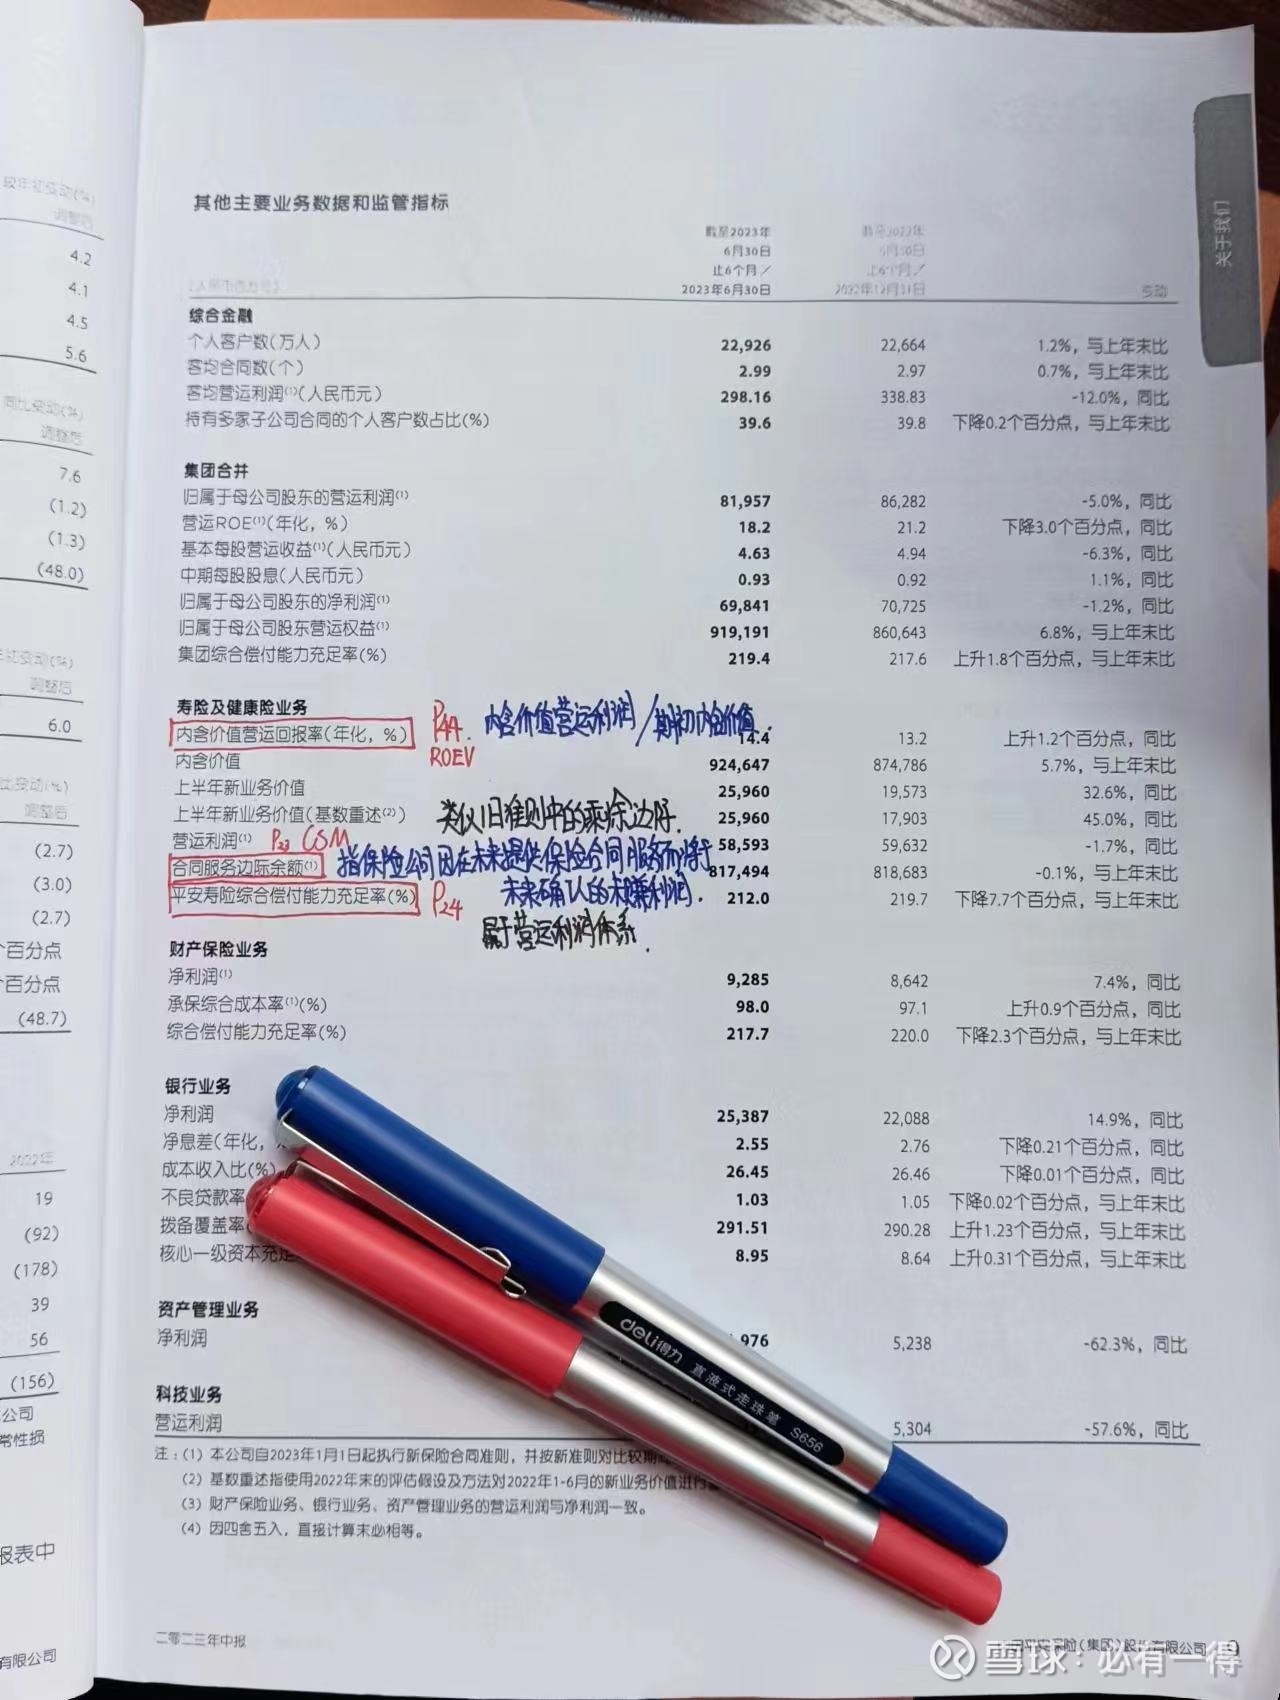 较年初变动(%)
调整后
4.2
4.1
4.5
5.6
同比变动(%)
调整后
7.6
(1.2)
(1.3)
(48.0)
初变动(%)
调整后
6.0
比变动(%)
调整后
(2.7)
(3.0)
(2.7)
个百分点
百分点
(48.7)
2022年
19
(92)
(178)
39
56
(156)
公司
常性损
报表中
有限公司
关于我们
其他主要业务数据和监管指标
截至2023年 截至2022年
6月30日 6月30日
止6个月／ 止6个月／
(人民币百万元) 2023年6月30日 2022年12月31日 变动
综合金融
个人客户数(万人) 22,926 22,664 1.2%，与上年末比
客均合同数(个) 2.99 2.97 0.7%，与上年末比
客均营运利润⁽¹⁾(人民币元) 298.16 338.83 -12.0%，同比
持有多家子公司合同的个人客户数占比(%) 39.6 39.8 下降0.2个百分点，与上年末比
集团合并
归属于母公司股东的营运利润⁽¹⁾ 81,957 86,282 -5.0%，同比
营运ROE⁽¹⁾(年化，%) 18.2 21.2 下降3.0个百分点，同比
基本每股营运收益⁽¹⁾(人民币元) 4.63 4.94 -6.3%，同比
中期每股股息(人民币元) 0.93 0.92 1.1%，同比
归属于母公司股东的净利润⁽¹⁾ 69,841 70,725 -1.2%，同比
归属于母公司股东营运权益⁽¹⁾ 919,191 860,643 6.8%，与上年末比
集团综合偿付能力充足率(%) 219.4 217.6 上升1.8个百分点，与上年末比
寿险及健康险业务
P44. 内含价值营运利润/期初内含价值.
内含价值营运回报率(年化，%) 14.4 13.2 上升1.2个百分点，同比
ROEV
内含价值 924,647 874,786 5.7%，与上年末比
上半年新业务价值 25,960 19,573 32.6%，同比
上半年新业务价值(基数重述⁽²⁾) 25,960 17,903 45.0%，同比
类似旧准则中的剩余边际.
营运利润⁽¹⁾ P23 CSM 58,593 59,632 -1.7%，同比
指保险公司因在未来提供保险合同服务而将于
合同服务边际余额⁽¹⁾ 817,494 818,683 -0.1%，与上年末比
未来确认的未赚利润.
平安寿险综合偿付能力充足率(%) P24 212.0 219.7 下降7.7个百分点，与上年末比
属于营运利润体系.
财产保险业务
净利润⁽¹⁾ 9,285 8,642 7.4%，同比
承保综合成本率⁽¹⁾(%) 98.0 97.1 上升0.9个百分点，同比
综合偿付能力充足率(%) 217.7 220.0 下降2.3个百分点，与上年末比
银行业务
净利润 25,387 22,088 14.9%，同比
净息差(年化， 2.55 2.76 下降0.21个百分点，同比
成本收入比(%) 26.45 26.46 下降0.01个百分点，同比
不良贷款率 1.03 1.05 下降0.02个百分点，与上年末比
拨备覆盖率( 291.51 290.28 上升1.23个百分点，与上年末比
核心一级资本充足 8.95 8.64 上升0.31个百分点，与上年末比
资产管理业务
净利润 ,976 5,238 -62.3%，同比
科技业务
营运利润 5,304 -57.6%，同比
注：(1) 本公司自2023年1月1日起执行新保险合同准则，并按新准则对比较期
(2) 基数重述指使用2022年末的评估假设及方法对2022年1-6月的新业务价值进行
(3) 财产保险业务、银行业务、资产管理业务的营运利润与净利润一致。
(4) 因四舍五入，直接计算未必相等。
deli得力 直液式走珠笔 S656
二零二三年中报
中国平安保险(集团)股份有限公司 9
雪球：必有一得